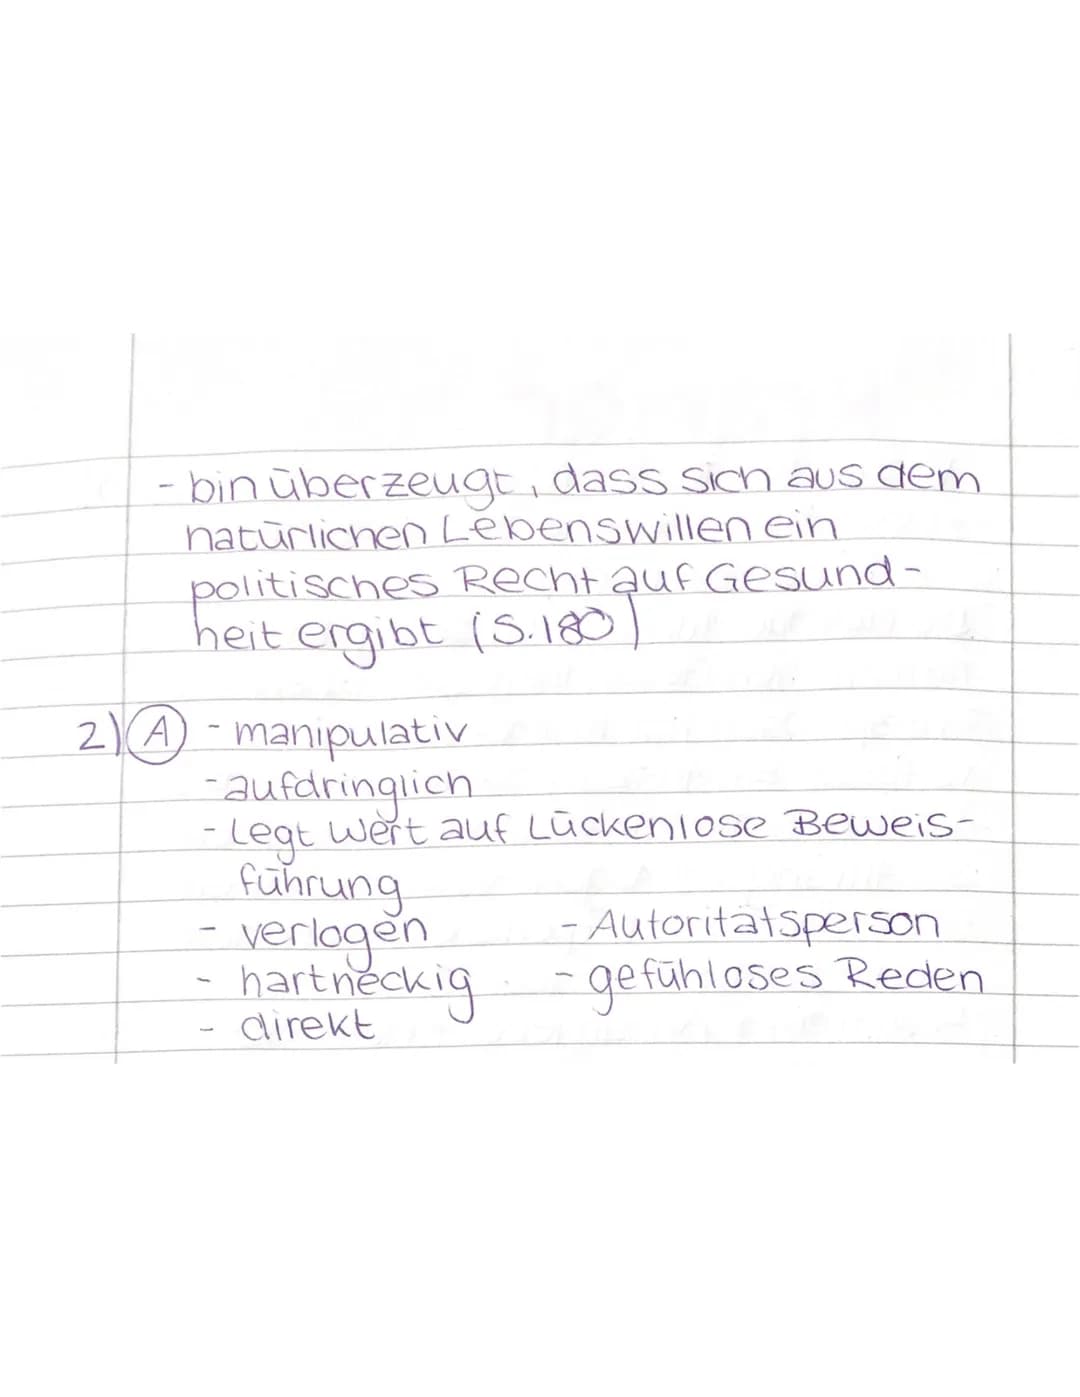 - bin überzeugt, dass sich aus dem
natürlichen Lebenswillen ein
politisches Recht auf Gesund-
heit ergibt (S.180)
2) A - manipulativ
- aufdringlich
- Legt Wert auf Lückenlose Beweis-
führung
- verlogen - Autoritätsperson
- hartneckig - gefühloses Reden
- direkt